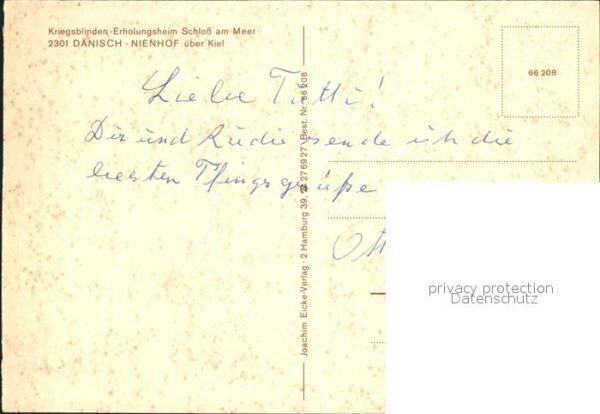 Kriegsblinden-Erholungsheim Schloß am Meer
2301 DÄNISCH - NIENHOF über Kiel
66 208
Liebe Tutti!
Dir und Rudie sende ich die
besten Pfingsgrüße
Joachim Eicke-Verlag · 2 Hamburg 39, ☎ 27 69 27 / Best. Nr. 66 208
privacy protection
Datenschutz